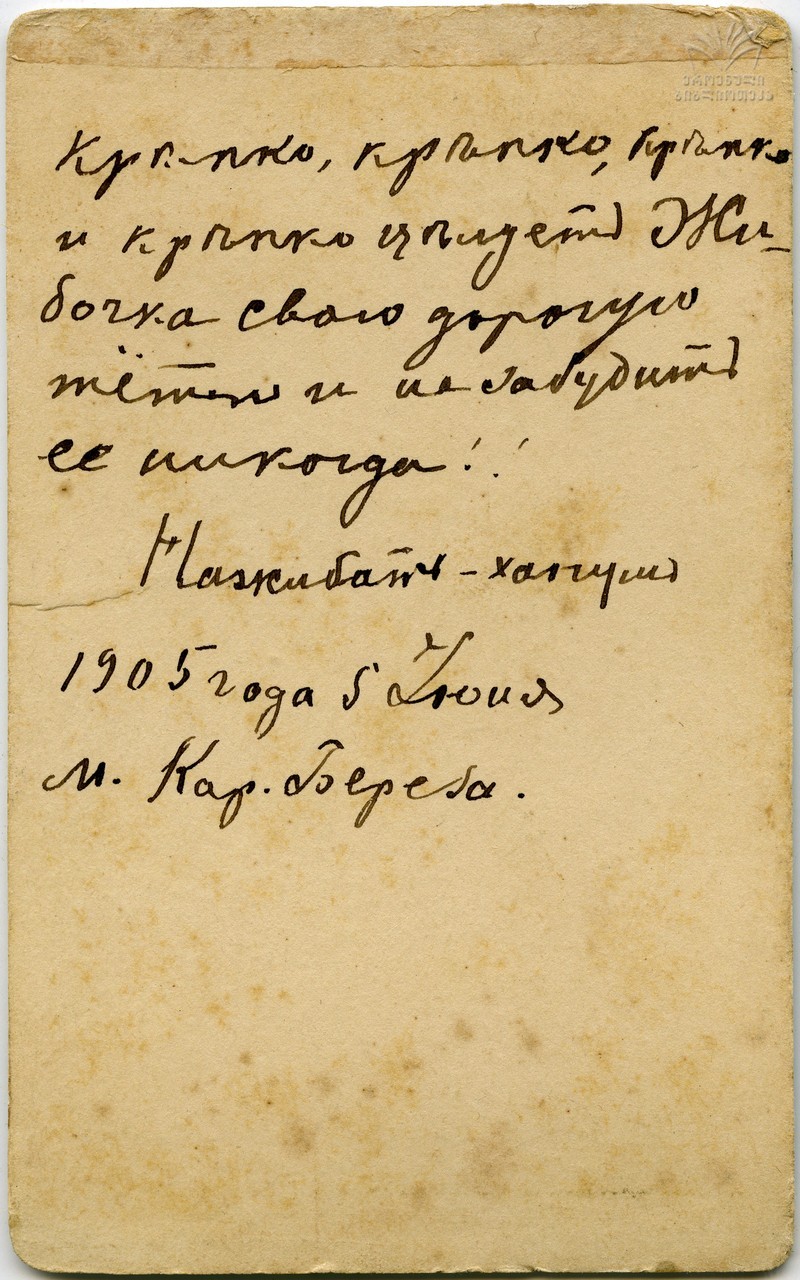 Крѣпко, крѣпко, крѣпко
и крѣпко цѣлуетъ Жи-
бочка свою дорогую
тётю и не забудитъ
ее никогда!!
Нажибатъ-ханумъ
1905 года 5 Іюня
м. Кар. Береба.